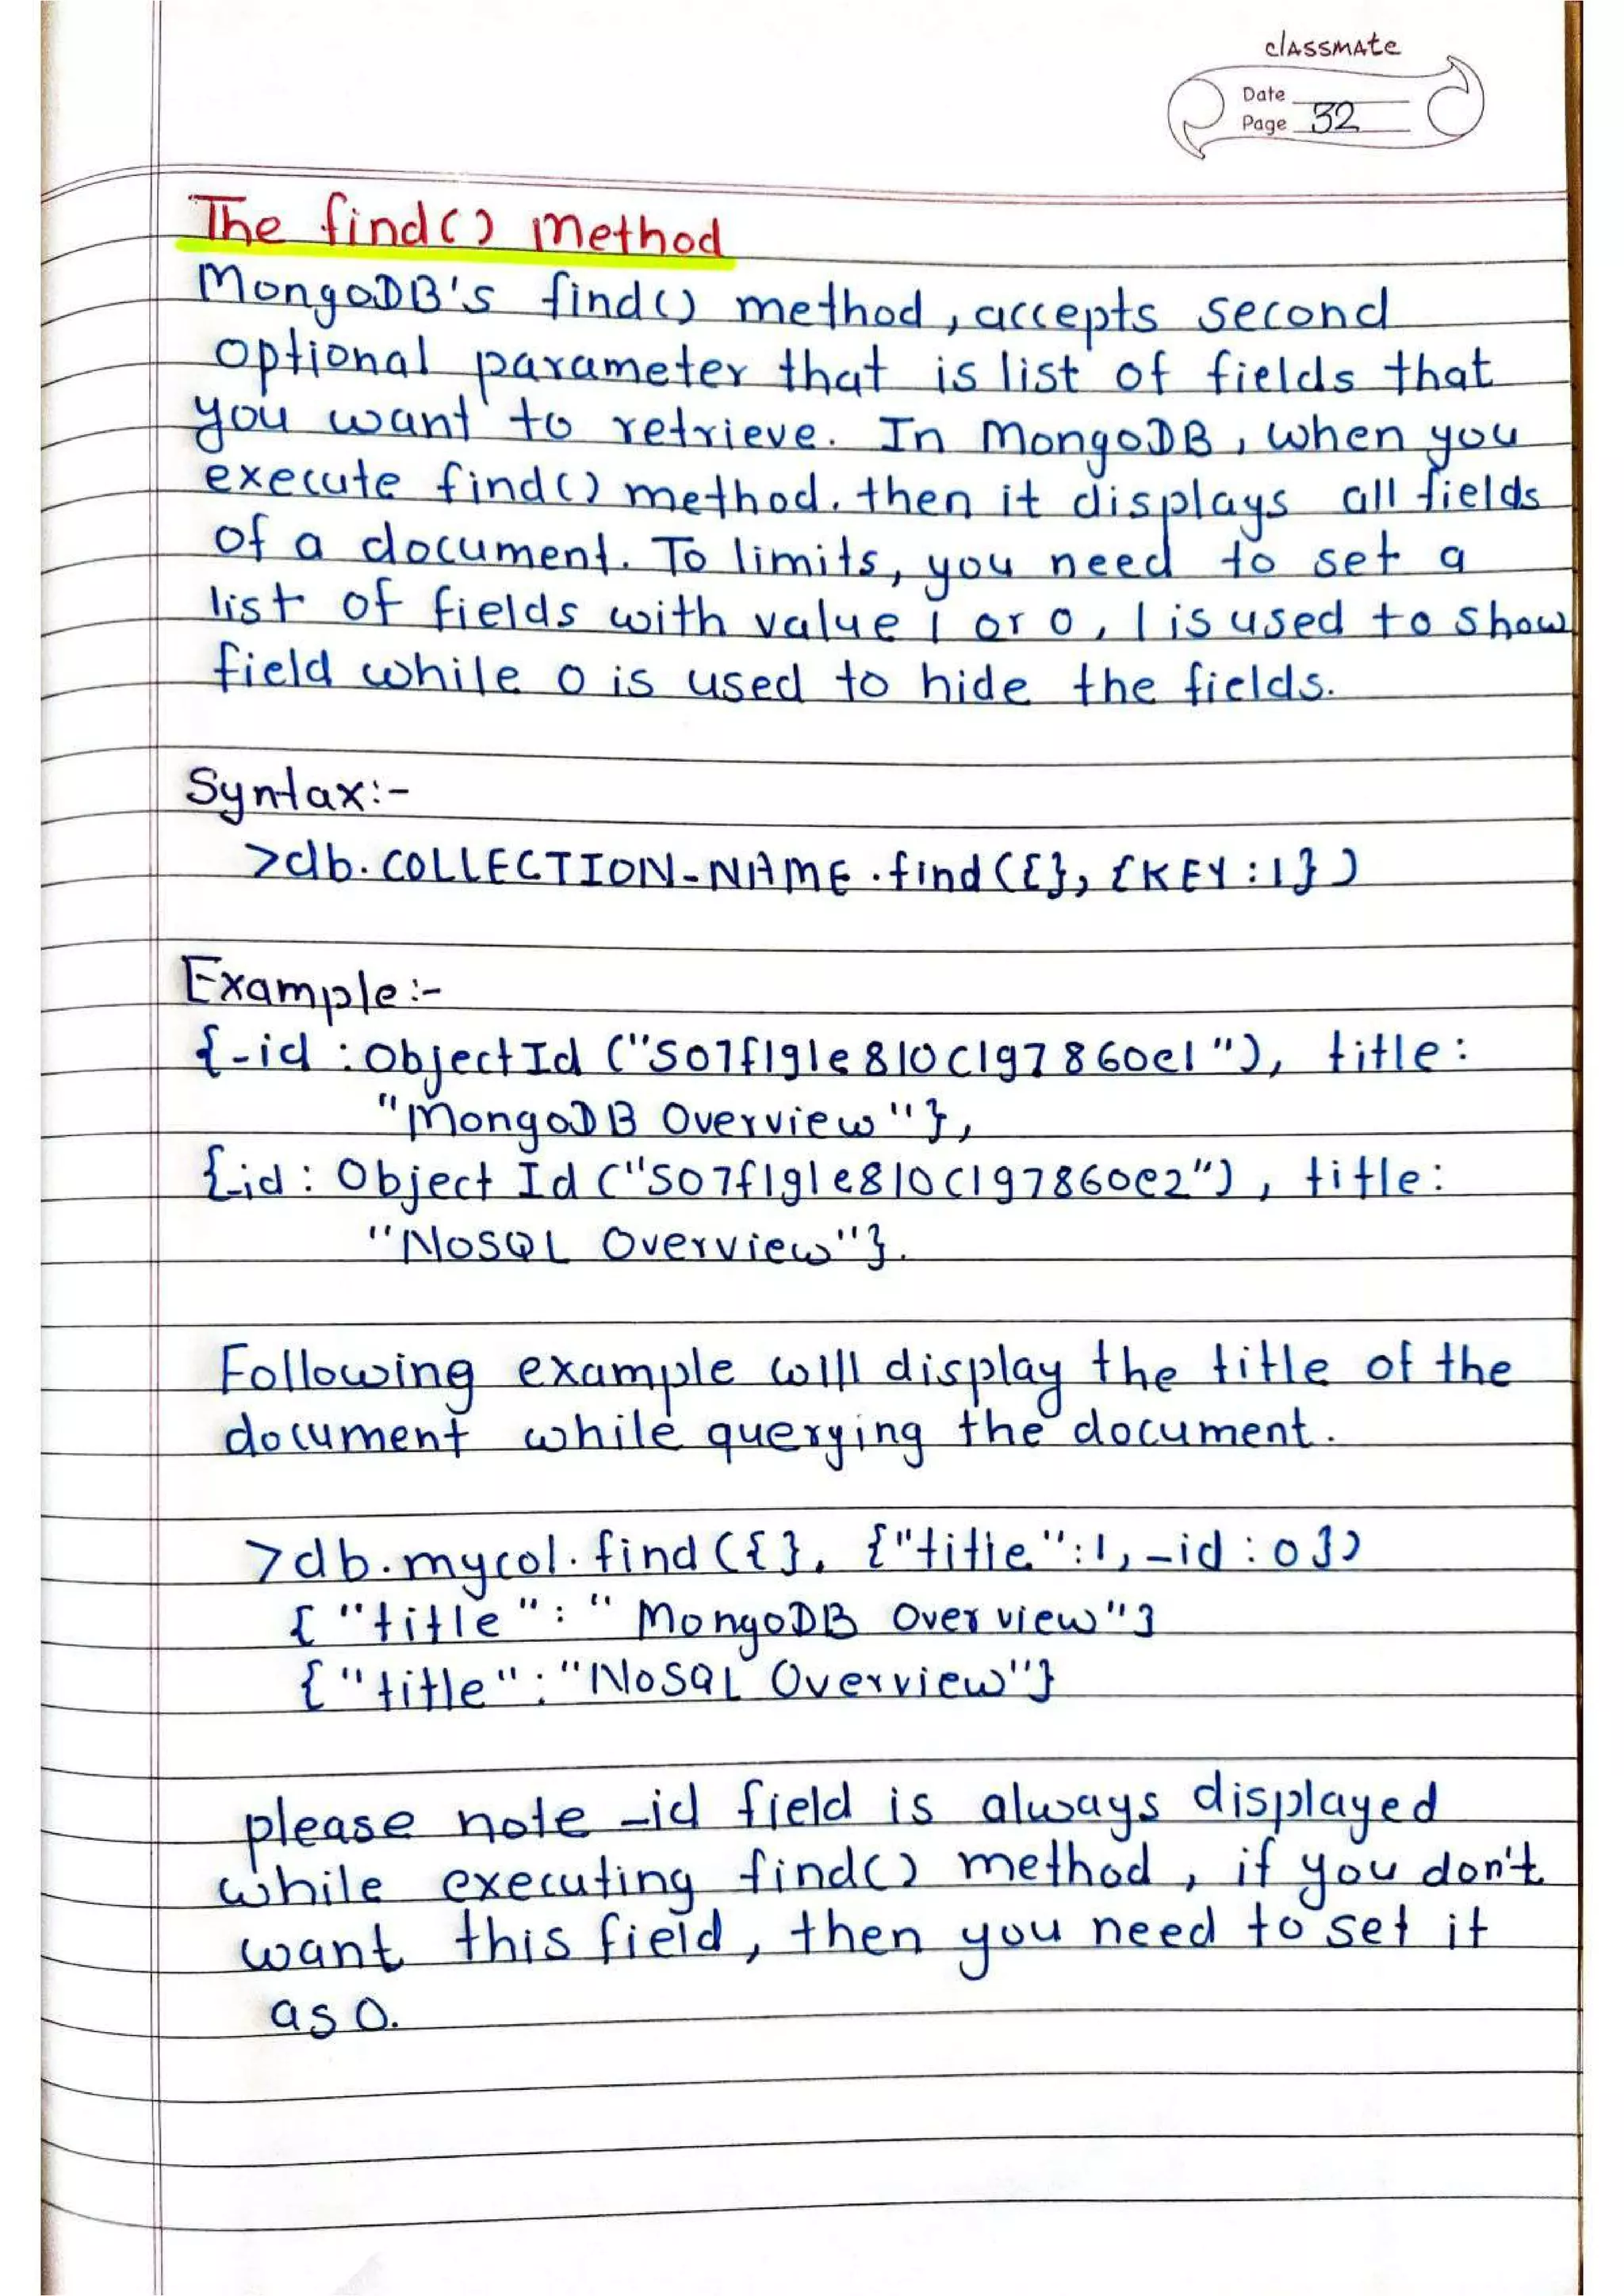 classmate
Date
Page 32
The find() Method
MongoDB's find() method, accepts second
optional parameter that is list of fields that
you want to retrieve. In MongoDB, when you
execute find() method. then it displays all fields
of a document. To limits, you need to set a
list of fields with value 1 or 0, 1 is used to show
field while 0 is used to hide the fields.
Syntax:-
>db.COLLECTION-NAME.find({}, {KEY:1})
Example:-
{-id : ObjectId ("507f191e810c197860e1"), title:
"MongoDB Overview"},
{_id : Object Id ("507f191e810c197860e2"), title:
"NoSQL Overview"}.
Following example will display the title of the
document while querying the document.
>db.mycol.find({}, {"title":1, _id : 0})
{ "title" : "MongoDB Overview"}
{ "title" : "NoSQL Overview"}
please note _id field is always displayed
while executing find() method, if you don't
want this field, then you need to set it
as 0.